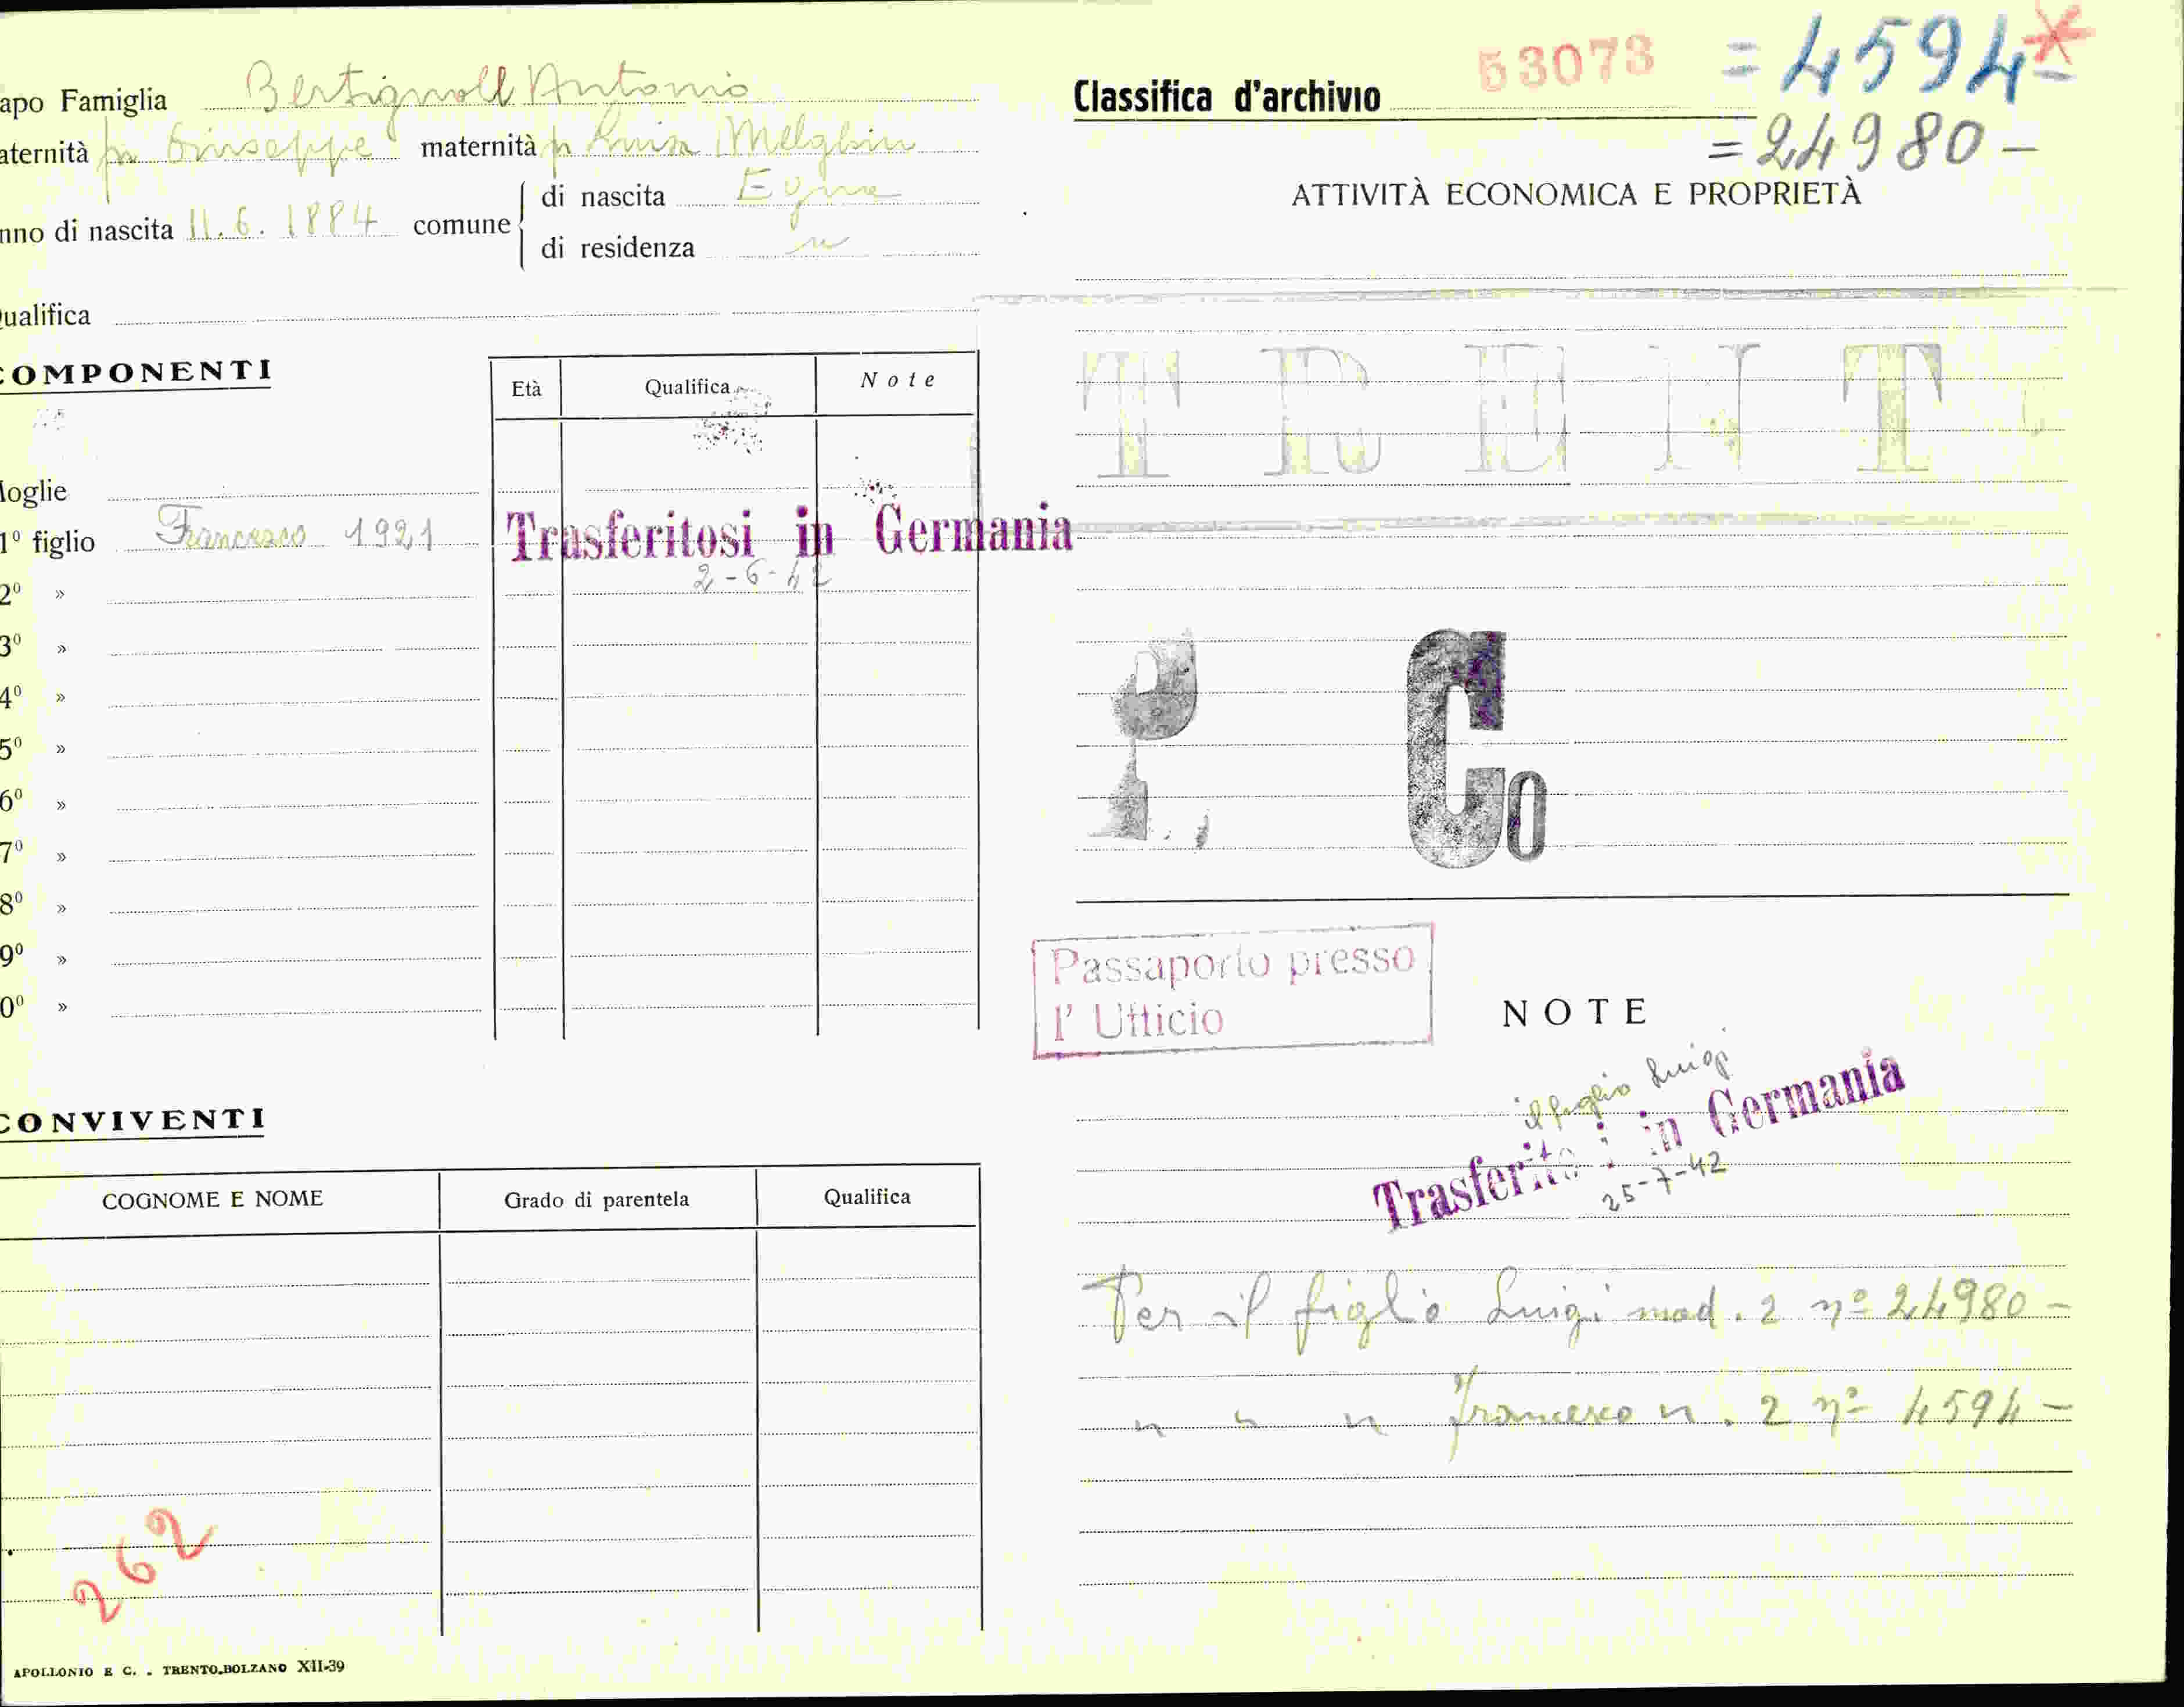 apo Famiglia Bertignoll Antonio
aternità fu Giuseppe maternità fu Luisa Melghin
nno di nascita 11.6.1884 comune di nascita Egna
di residenza "
ualifica
COMPONENTI
Età Qualifica Note
oglie
1º figlio Francesco 1921 Trasferitosi in Germania
2-6-42
2º »
3º »
4º »
5º »
6º »
7º »
8º »
9º »
0º »
CONVIVENTI
COGNOME E NOME Grado di parentela Qualifica
262
APOLLONIO E C. - TRENTO-BOLZANO XII-39
Classifica d'archivio 53073 = 4594 -
= 24980 -
ATTIVITÀ ECONOMICA E PROPRIETÀ
TRENT
P. Co
Passaporto presso
l' Ufficio
NOTE
il figlio Luigi
Trasferitosi in Germania
25-7-42
Per il figlio Luigi mod. 2 nº 24980 -
" " " Francesco ". 2 nº 4594 -